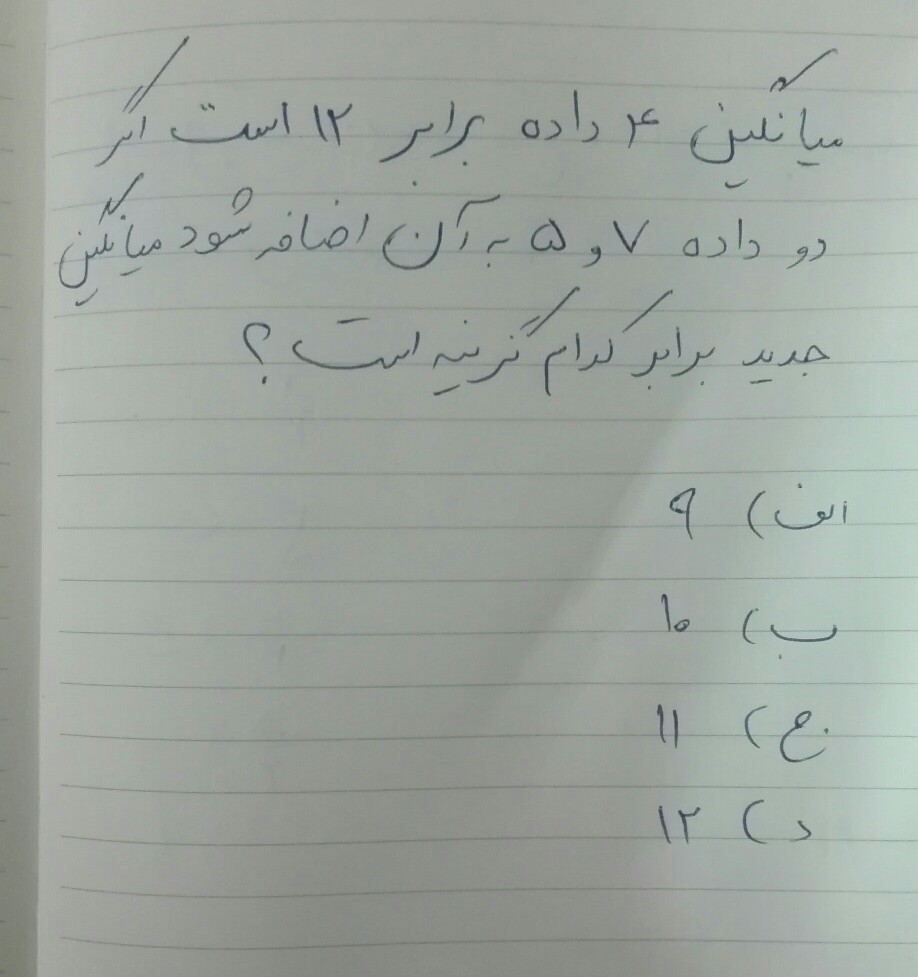 میانگین ۴ داده برابر ۱۲ است اگر
دو داده ۷ و ۵ به آن اضافه شود میانگین
جدید برابر کدام گزینه است ؟
الف) ۹
ب) ۱۰
ج) ۱۱
د) ۱۲